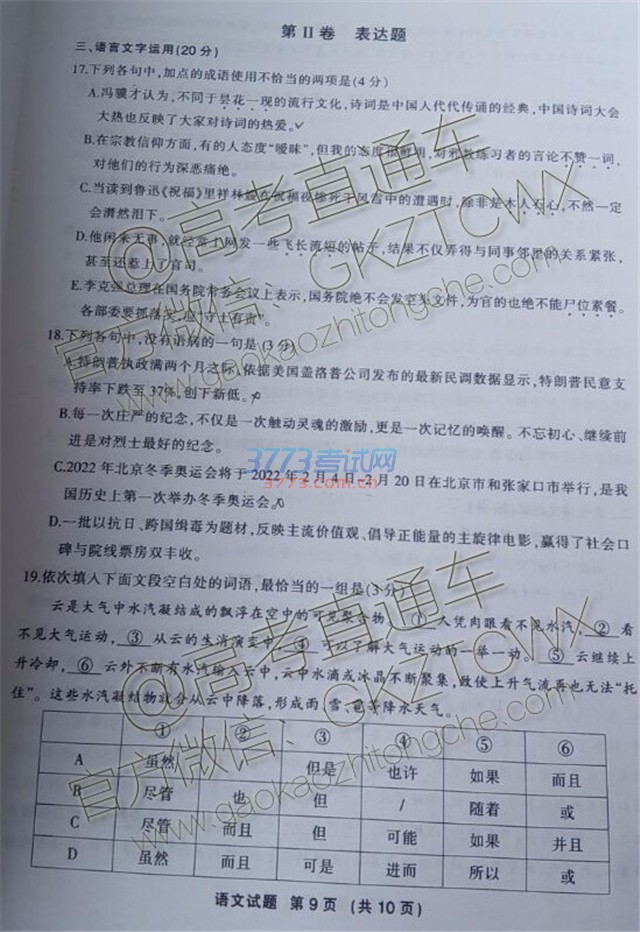 第 II 卷 表达题
三、语言文字运用(20分)
17.下列各句中,加点的成语使用不恰当的两项是(4分)
A.冯骥才认为,不同于昙花一现的流行文化,诗词是中国人代代传诵的经典,中国诗词大会
大热也反映了大家对诗词的热爱。
B.在宗教信仰方面,有的人态度“暧昧”,但我的态度很鲜明,对邪教练习者的言论不赞一词,
对他们的行为深恶痛绝。
C.当读到鲁迅《祝福》里祥林嫂在祝福夜惨死于风雪中的遭遇时,除非是木人石心,不然一定
会潸然泪下。
D.他闲来无事,就经常上网发一些飞长流短的帖子,结果不仅弄得与同事邻里的关系紧张,
甚至还惹上了官司。
E.李克强总理在国务院常务会议上表示,国务院绝不会发空头文件,为官的也绝不能尸位素餐。
各部委要抓落实,应“守土有责”。
18.下列各句中,没有语病的一句是(3分)
A.特朗普执政满两个月之际,依据美国盖洛普公司发布的最新民调数据显示,特朗普民意支
持率下跌至37%,创下新低。
B.每一次庄严的纪念,不仅是一次触动灵魂的激励,更是一次记忆的唤醒。不忘初心、继续前
进是对烈士最好的纪念。
C.2022年北京冬季奥运会将于2022年2月4日-2月20日在北京市和张家口市举行,是我
国历史上第一次举办冬季奥运会。
D.一批以抗日、跨国缉毒为题材,反映主流价值观、倡导正能量的主旋律电影,赢得了社会口
碑与院线票房双丰收。
19.依次填入下面文段空白处的词语,最恰当的一组是(3分)
云是大气中水汽凝结成的飘浮在空中的可见聚合物。 ① 人凭肉眼看不见水汽, ② 看
不见大气运动, ③ 从云的生消演变中, ④ 可以了解大气运动的一举一动。 ⑤ 云继续上
升冷却, ⑥ 云外不断有水汽输入云中,云中水滴或冰晶不断聚集,致使上升气流再也无法“托
住”。这些水汽凝结物就会从云中降落,形成雨、雪、雹等降水天气。
① ② ③ ④ ⑤ ⑥
A 虽然 / 但是 也许 如果 而且
B 尽管 也 但 / 随着 或
C 尽管 而且 但 可能 如果 并且
D 虽然 而且 可是 进而 所以 或
语文试题 第9页 (共10页)
@高考直通车
官方微信: GKZTCWX
www.gaokaozhitongche.com
3773考试网
3773.com.cn
@高考直通车
官方微信: GKZTCWX
www.gaokaozhitongche.com